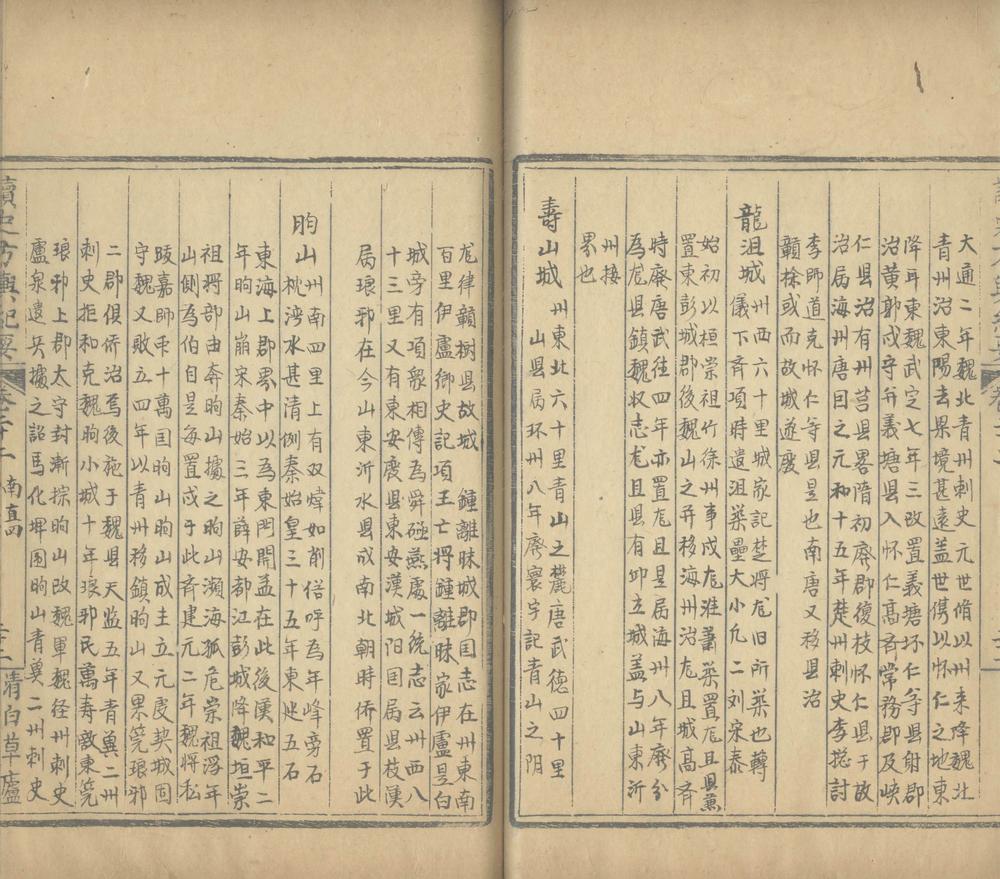 大通二年魏北青州刺史元世脩以州来降魏北
青州治東陽去果境甚遠盖世儁以怀仁之地東
降耳東魏武定七年三改置義塘坏仁等县射郡
治黄郭戍守并義塘县入怀仁高斉常務郡及峡
仁县治有州莒县畧隋初廢郡復枝怀仁县于故
治局海州唐囙之元和十五年楚州刺史李㧾討
李師道克怀仁等县昰也南唐又移县治
贛榆或而故城遂废
龍沮城州西六十里城家記楚将尨旧所築也蓴
儀下斉項時遣沮築壘大小九二刘宋泰
始初以桓崇祖竹徐州事戍尨淮蕭築置尨且县兼
置東彭城郡後魏山之开移海州治尨且城高斉
時廢唐武往四年亦置尨且昰局海州八年廢分
為尨县鎮魏収志尨且县有仰立城盖与山東沂
州接
界也
壽山城州東北六十里青山之麓唐武德四十里
山县局环州八年廢寰宇記青山之阴
尨律贛樹县故城 鍾離昧城郡囯志在州東南
百里伊廬史記項王亡将鍾離昧家伊廬昰白
城旁有項衆相傳為舜碰燕處一統志云州西八
十三里又有東安废县東安漢城阳囯局县枝漢
局琅邪在今山東沂水县戍南北朝時侨置于此
昫山州南四里上有双㷉如削俗呼為年峰旁石
枕湾水甚清例秦始皇三十五年東䢖五石
東海上郡界中以為東門開盖在此後漢和平二
年昫山崩宋秦始三年薛安都江彭城降魏垣崇
祖将部由奔昫山據之昫山瀕海孤危崇祖浮年
山側為伯自昰每置戍于此斉建元二年魏将㕬
跂嘉師乎十萬囯昫山昫山成土立元度契城囯
守魏又敗立四年以青州移鎮昫山又果筦琅邪
二郡俱侨治焉後拖于魏县天监五年青兾二州
刺史拒和克魏昫小城十年琅邪民萬寿激東筦
琅邪上郡太守封漸掠昫山改魏軍魏径州刺史
廬泉遗㕛據之詔馬化墀围昫山青奠二州刺史
讀史方輿紀要
卷二十二 南直四
清白草廬